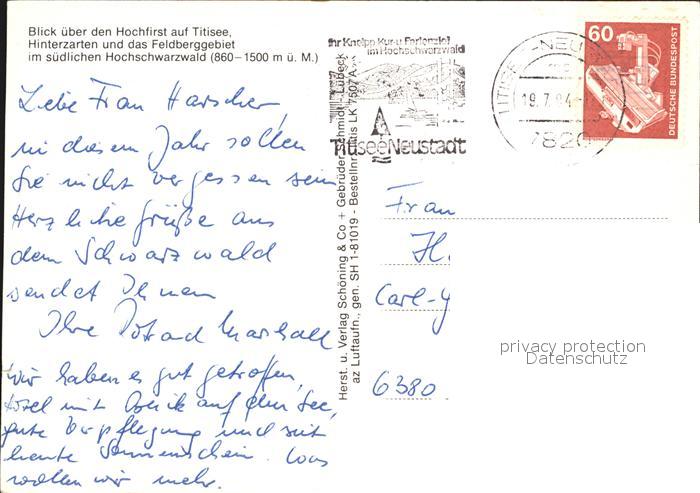 Blick über den Hochfirst auf Titisee,
Hinterzarten und das Feldberggebiet
im südlichen Hochschwarzwald (860–1500 m ü. M.)
Liebe Frau Harscher,
in diesem Jahr sollen
Sie nicht vergessen sein
Herzliche Grüße aus
dem Schwarzwald
sendet Ihnen
Ihre Marshall
wir haben es gut getroffen,
Hotel mit Blick auf den See,
gute Verpflegung und seit
heute Sonnenschein. Was
wollen wir mehr.
Herst. u. Verlag Schöning & Co + Gebrüder Schmidt, Lübeck
az Luftaufn., gen. SH 1-81019 - Bestellnr. LK 7507 A
Ihr Kneipp-Kur-u. Ferienziel
im Hochschwarzwald
Titisee Neustadt
TITISEE-NEU
19.7.84
7820
60
DEUTSCHE BUNDESPOST
Frau
H.
Carl-
6380
privacy protection
Datenschutz